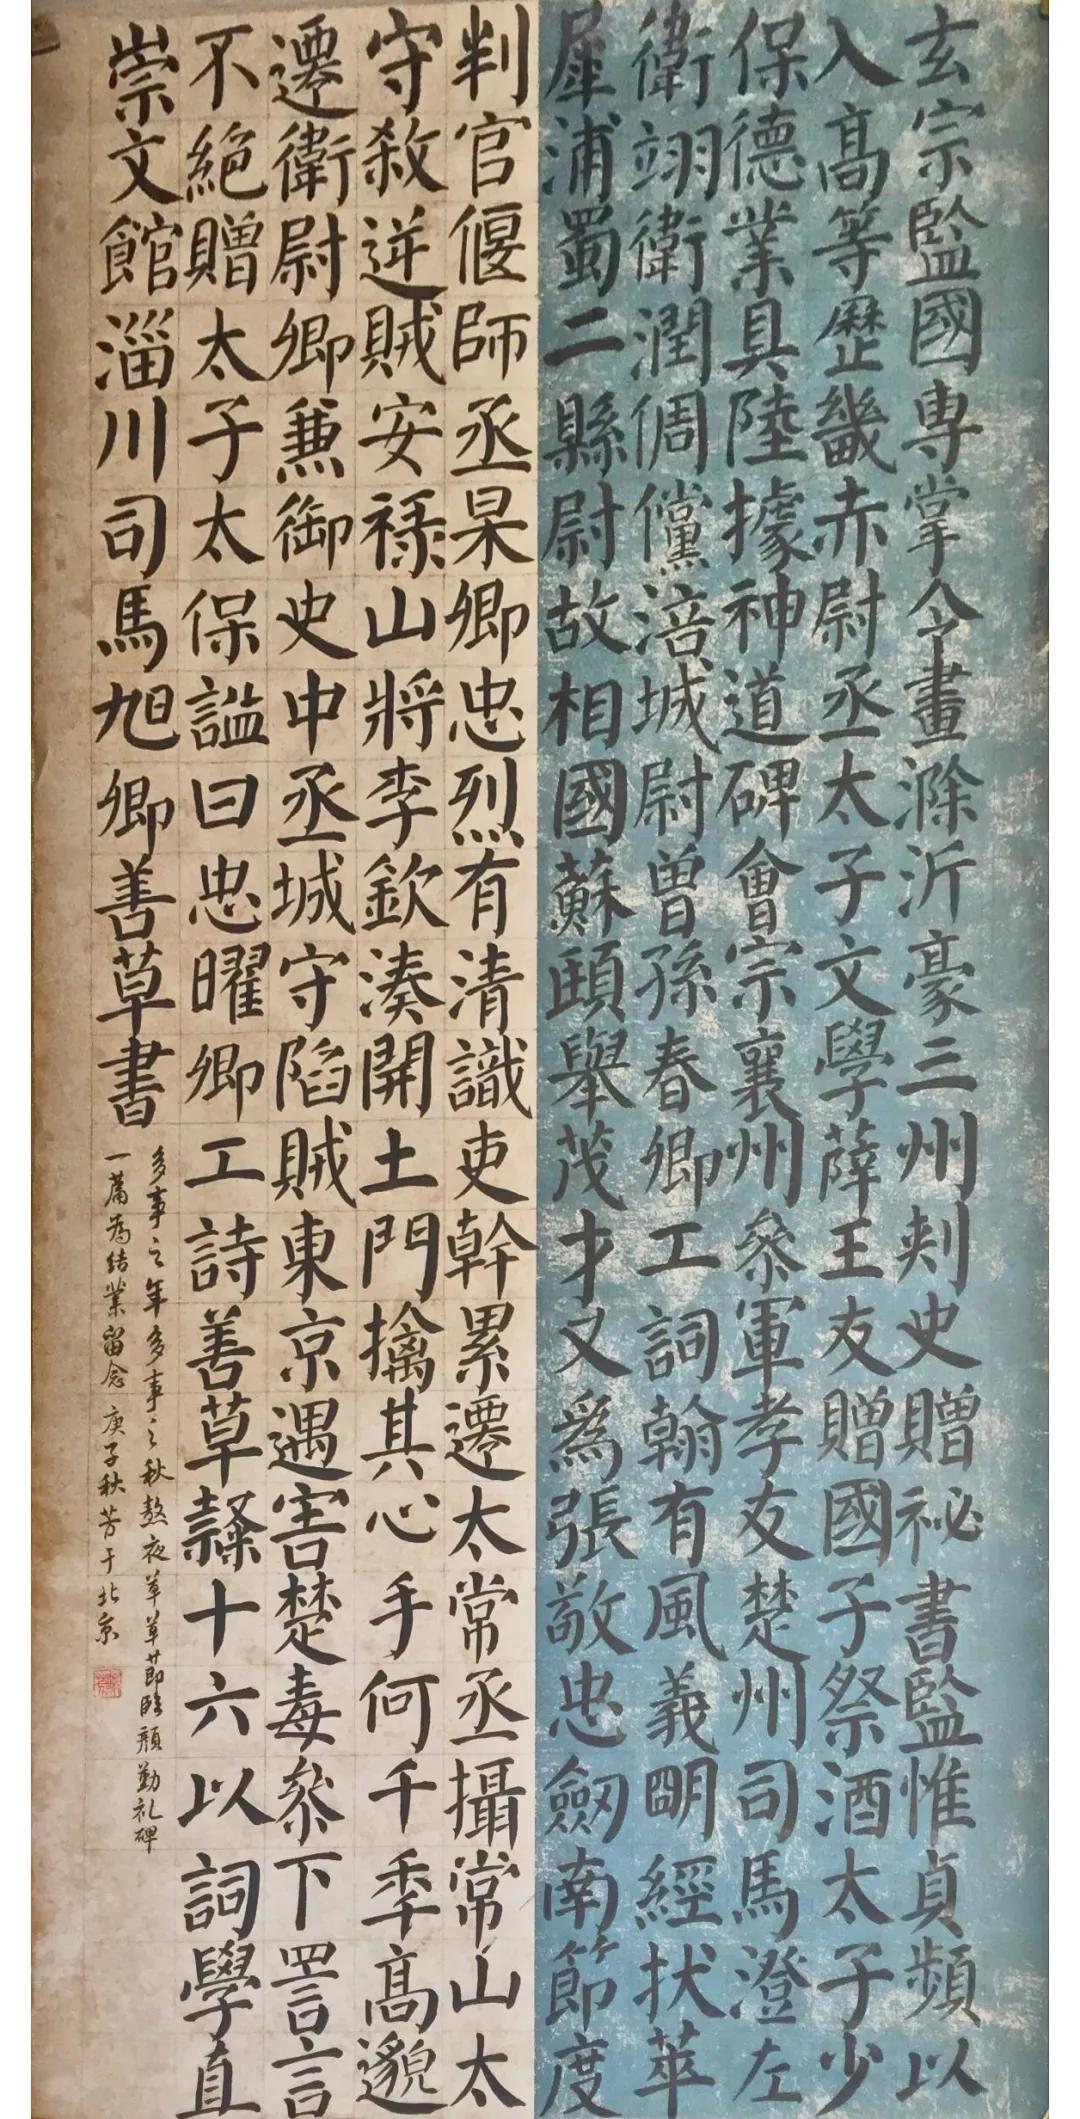 玄宗監國專掌令畫滁沂豪三州刾史贈祕書監惟貞頻以
入高等歷畿赤尉丞太子文學薛王友贈國子祭酒太子少
保德業具陸據神道碑會宗襄州參軍孝友楚州司馬澄左
衛翊衛潤倜儻涪城尉曽孫春卿工詞翰有風義明經拔萃
犀浦蜀二縣尉故相國蘇頲舉茂才又為張敬忠劒南節度
判官偃師丞杲卿忠烈有清識吏幹累遷太常丞攝常山太
守殺逆賊安禄山將李欽湊開土門擒其心手何千秊高邈
遷衛尉卿兼御史中丞城守陷賊東京遇害楚毒參下詈言
不絕贈太子太保謚曰忠曜卿工詩善草隸十六以詞學直
崇文館淄川司馬旭卿善草書
多事之年多事之秋熬夜草草節臨顏勤礼碑
一篇為结業留念 庚子秋芳于北京